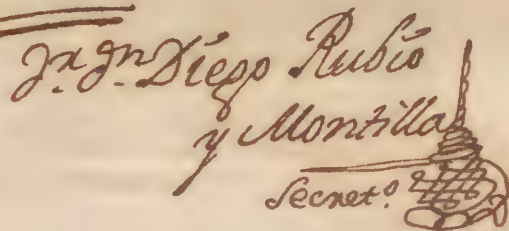 Diego Rubio
y Montilla
Secret.º